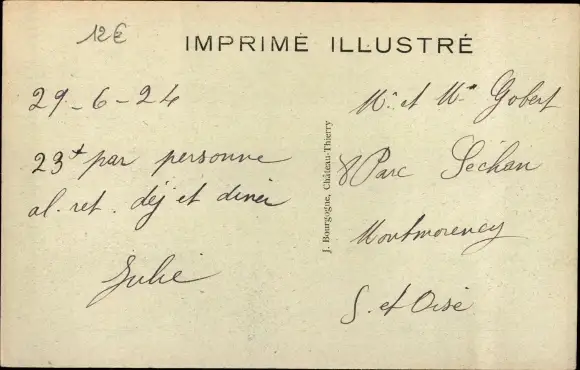 12€
IMPRIMÉ ILLUSTRÉ
29-6-24
23f par personne
al. ret. déj et diner
Julie
J. Bourgogne, Château-Thierry
Mr et Mme Gobert
8 Parc Séchan
Montmorency
S. et Oise